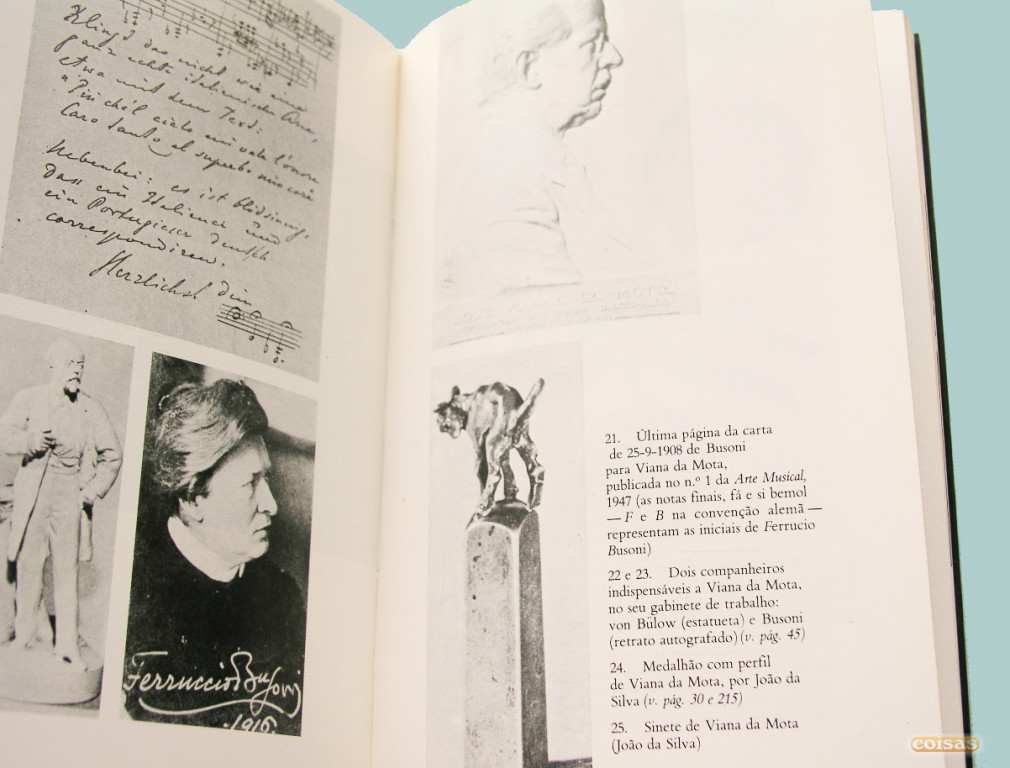 Klingt das nicht wie eine
ganz echte italienische Aria,
etwa mit dem Text:
"Più ch'él cielo mi vale l'onore
Caro Santo al superbo mio core
Nebenbei: es ist blödsinnig,
dass ein Italiener und
ein Portugiese deutsch
correspondiren.
Herzlichst Dein
Ferruccio Busoni
1916.
21. Última página da carta
de 25-9-1908 de Busoni
para Viana da Mota,
publicada no n.º 1 da Arte Musical,
1947 (as notas finais, fá e si bemol
— F e B na convenção alemã —
representam as iniciais de Ferrucio
Busoni)
22 e 23. Dois companheiros
indispensáveis a Viana da Mota,
no seu gabinete de trabalho:
von Bülow (estatueta) e Busoni
(retrato autografado) (v. pág. 45)
24. Medalhão com perfil
de Viana da Mota, por João da
Silva (v. pág. 30 e 215)
25. Sinete de Viana da Mota
(João da Silva)
coisas